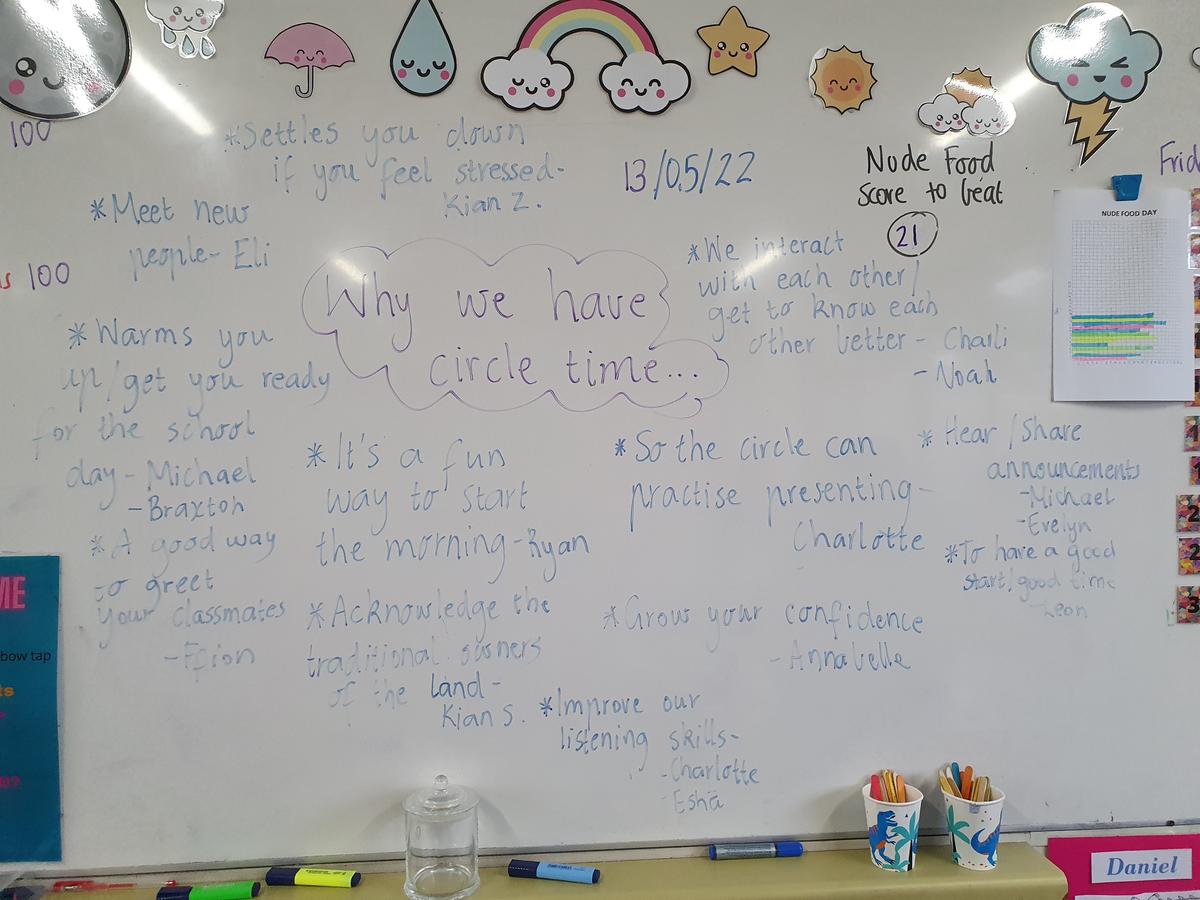 100
*Settles you down
if you feel stressed-
Kian Z.
13/05/22
Nude Food
score to beat
21
Frid
NUDE FOOD DAY
*Meet new
people- Eli
100
Why we have
circle time...
*We interact
with each other/
get to know each
other better - Charli
- Noah
*Warms you
up/get you ready
for the school
day - Michael
- Braxton
*A good way
to greet
your classmates
- Ffion
*It's a fun
way to start
the morning - Ryan
*Acknowledge the
traditional owners
of the land-
Kian S.
*So the circle can
practise presenting-
Charlotte
*Grow your confidence
- Annabelle
*Improve our
listening skills-
- Charlotte
- Esha
* Hear/share
announcements
- Michael
- Evelyn
*To have a good
start/good time
- Leon
ME
bow tap
ts
Daniel